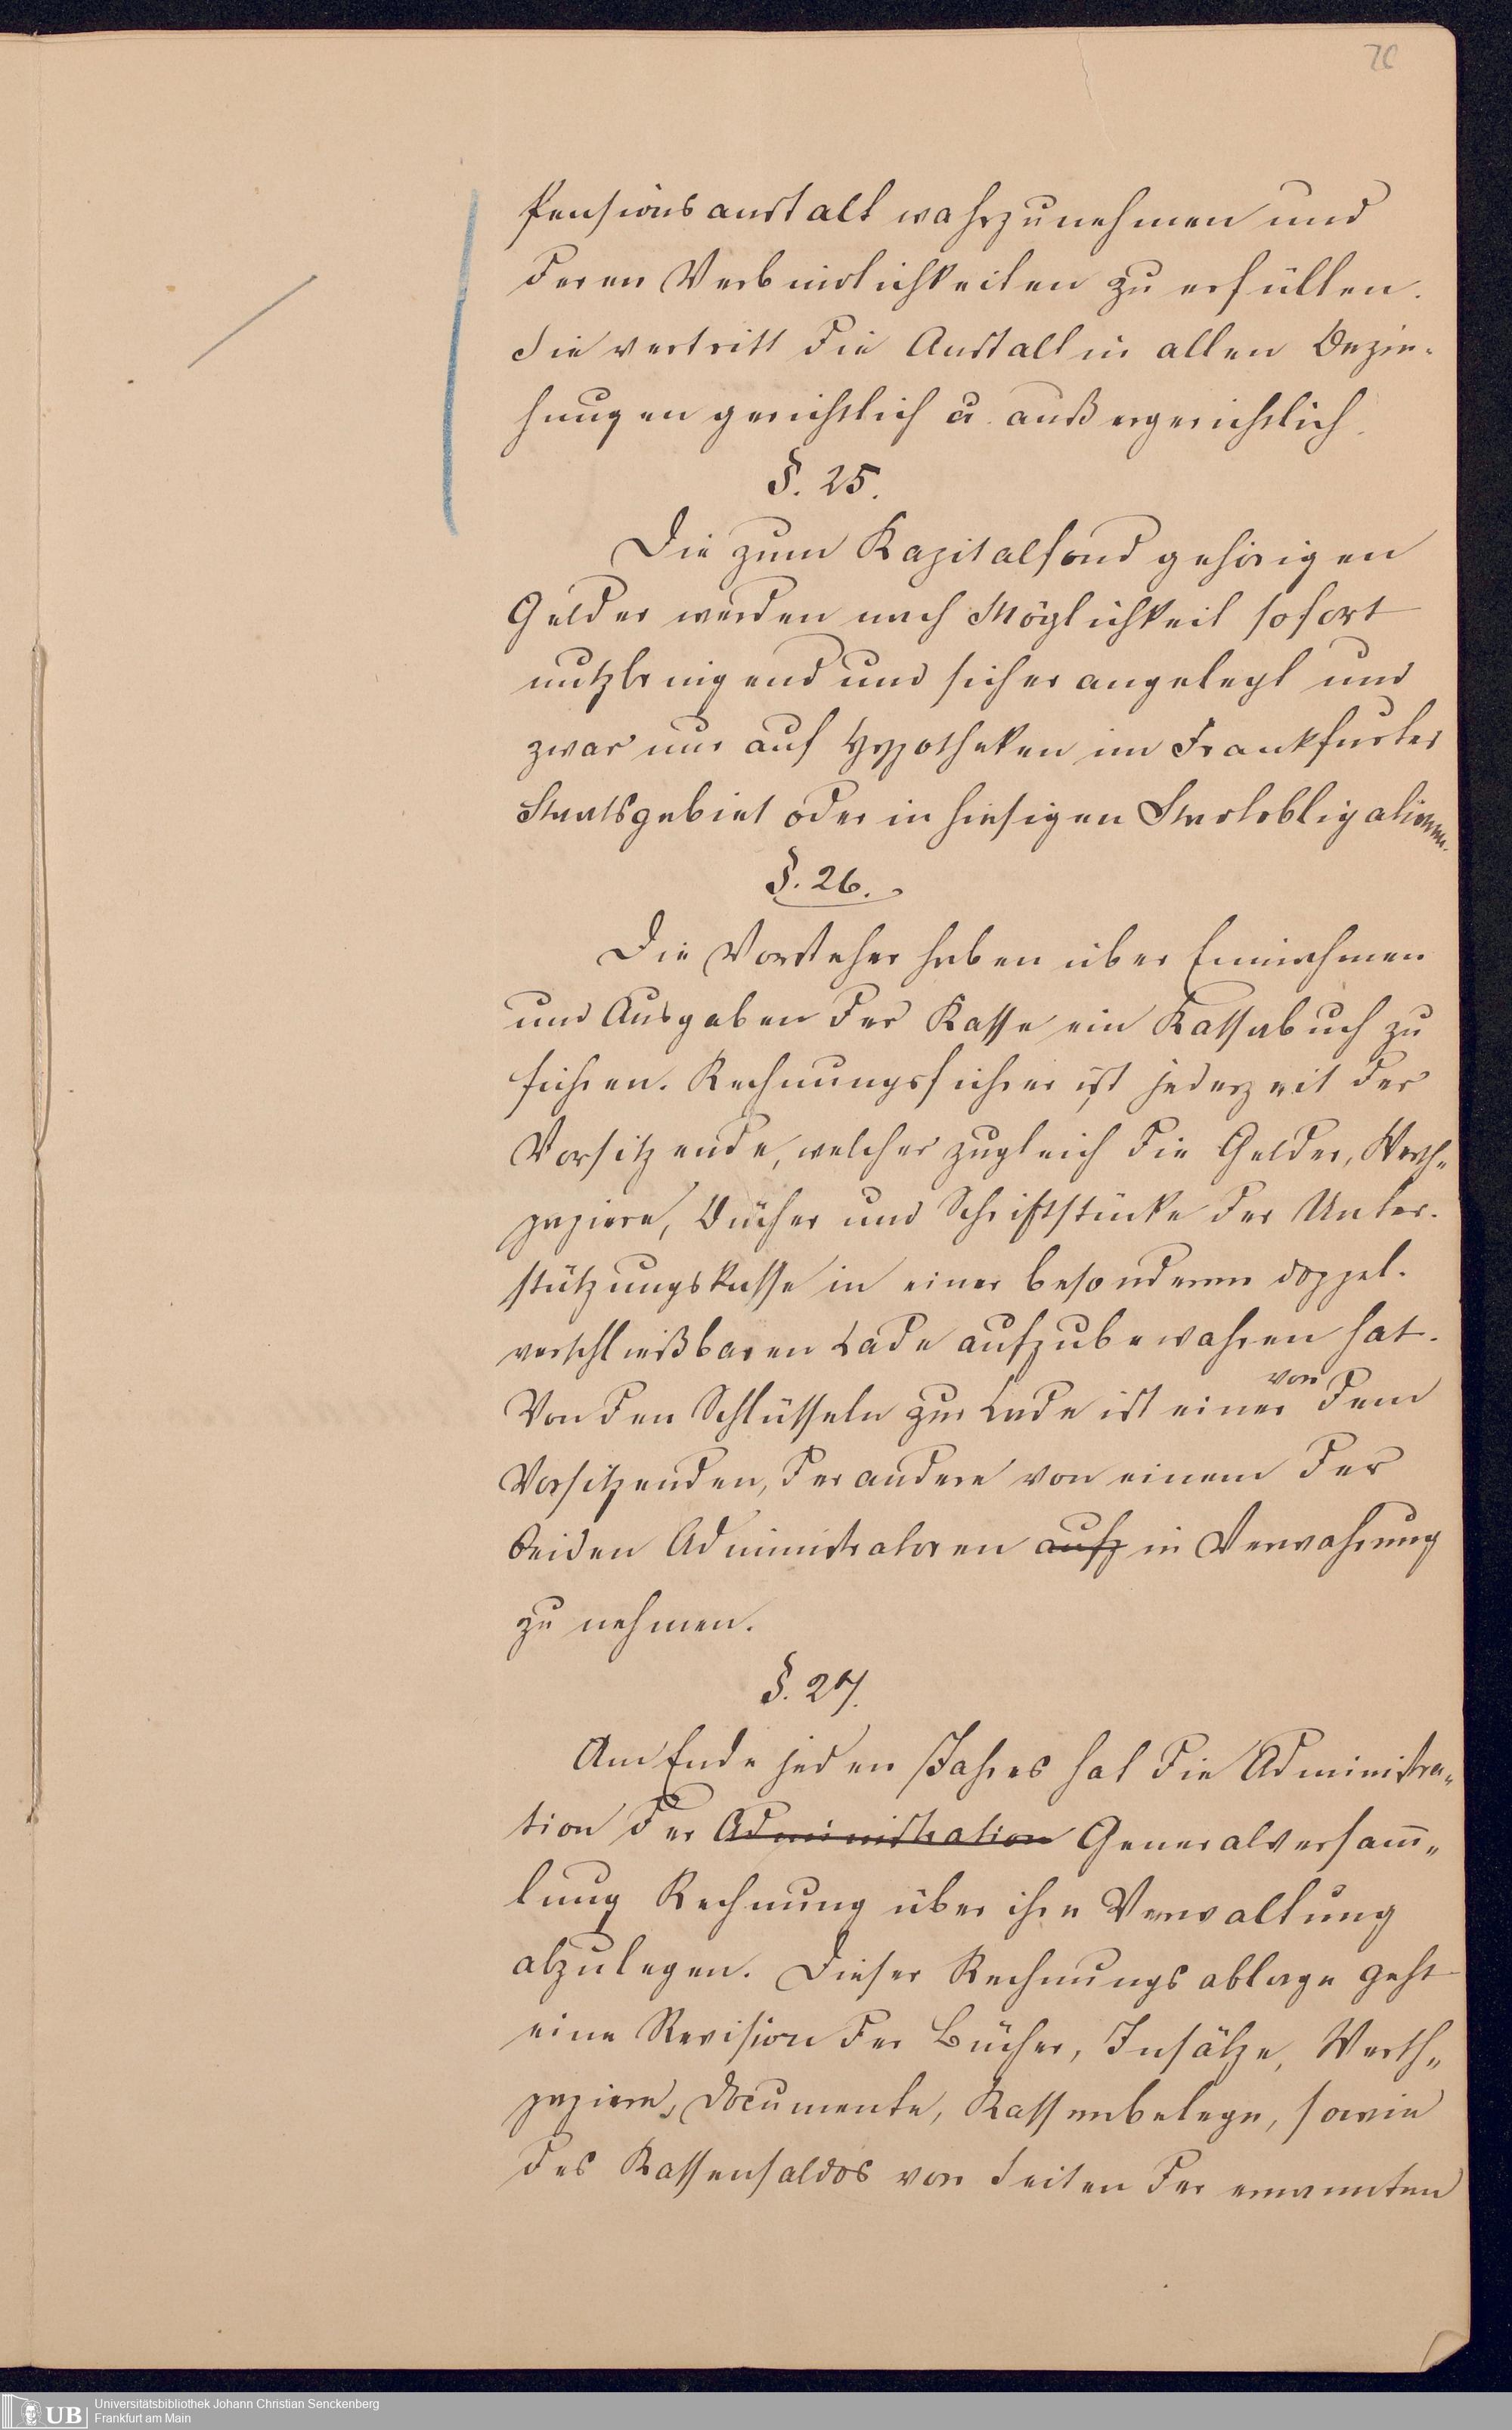 70
Pensionsanstalt wahrzunehmen und
deren Verbindlichkeiten zu erfüllen.
Sie vertritt die Anstalt in allen Bezie-
hungen gerichtlich u. außergerichtlich.
§. 25.
Die zum Kapitalfond gehörigen
Gelder werden nach Möglichkeit sofort
nutzbringend und sicher angelegt und
zwar nur auf Hypotheken im Frankfurter
Staatsgebiet oder in hiesigen Staatsobligationen.
§. 26.
Die Vorsteher haben über Einnahmen
und Ausgaben der Kasse ein Kassabuch zu
führen. Rechnungsführer ist jederzeit der
Vorsitzende, welcher zugleich die Gelder, Werth-
papiere, Bücher und Schriftstücke der Unter-
stützungskasse in einer besonderen doppel-
verschließbaren Lade aufzubewahren hat.
Von den Schlüsseln zur Lade ist einer von dem
Vorsitzenden, der andere von einem der
beiden Administratoren aufz in Verwahrung
zu nehmen.
§. 27.
Am Ende jeden Jahres hat die Administra-
tion der Administration Generalversam̄-
lung Rechnung über ihre Verwaltung
abzulegen. Dieser Rechnungsablage geht
eine Revision der Bücher, Insätze, Werth-
papiere, Documente, Kassenbelege, sowie
des Kassensaldos von Seiten der ernannten
UB
Universitätsbibliothek Johann Christian Senckenberg
Frankfurt am Main